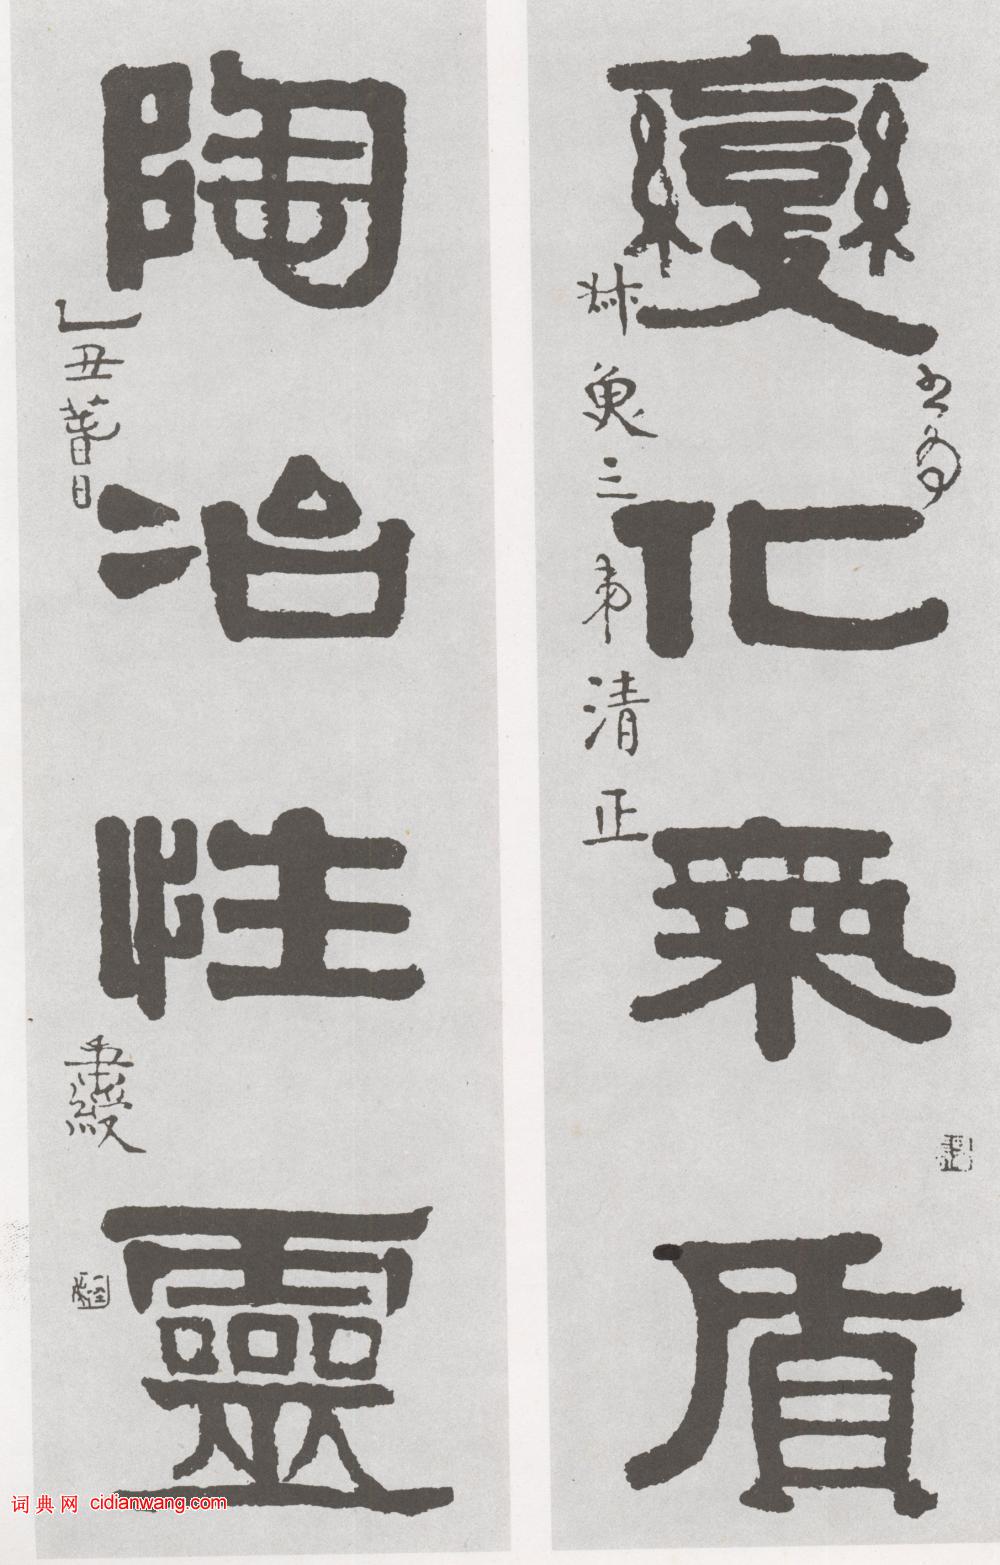 變化氣質
書為
三弟清正
陶冶性靈
乙丑萅日
秉綬
词典网 cidianwang.com